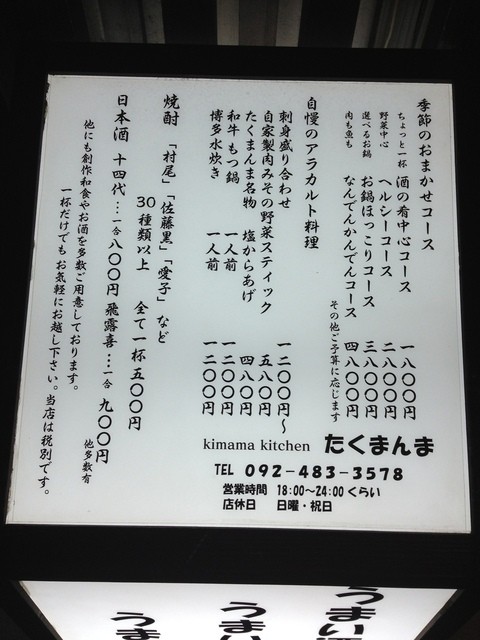 季節のおまかせコース
ちょっと一杯 酒の肴中心コース 一八〇〇円
野菜中心 ヘルシーコース 二八〇〇円
選べるお鍋 お鍋ほっこりコース 三八〇〇円
肉も魚も なんでんかんでんコース 四八〇〇円
その他ご予算に応じます
自慢のアラカルト料理
刺身盛り合わせ 一二〇〇円〜
自家製肉みその野菜スティック 五八〇円
たくまんま名物 塩からあげ 四八〇円
和牛もつ鍋 一人前 一二〇〇円
博多水炊き 一人前 一二〇〇円
焼酎 「村尾」「佐藤黒」「愛子」など
30種類以上 全て一杯五〇〇円
日本酒 十四代…一合八〇〇円 飛露喜…一合 九〇〇円
他多数有
他にも創作和食やお酒を多数ご用意しております。
一杯だけでもお気軽にお越し下さい。当店は税別です。
kimama kitchen たくまんま
TEL 092-483-3578
営業時間 18:00〜24:00くらい
店休日 日曜・祝日
うまい酒
うまい
うま